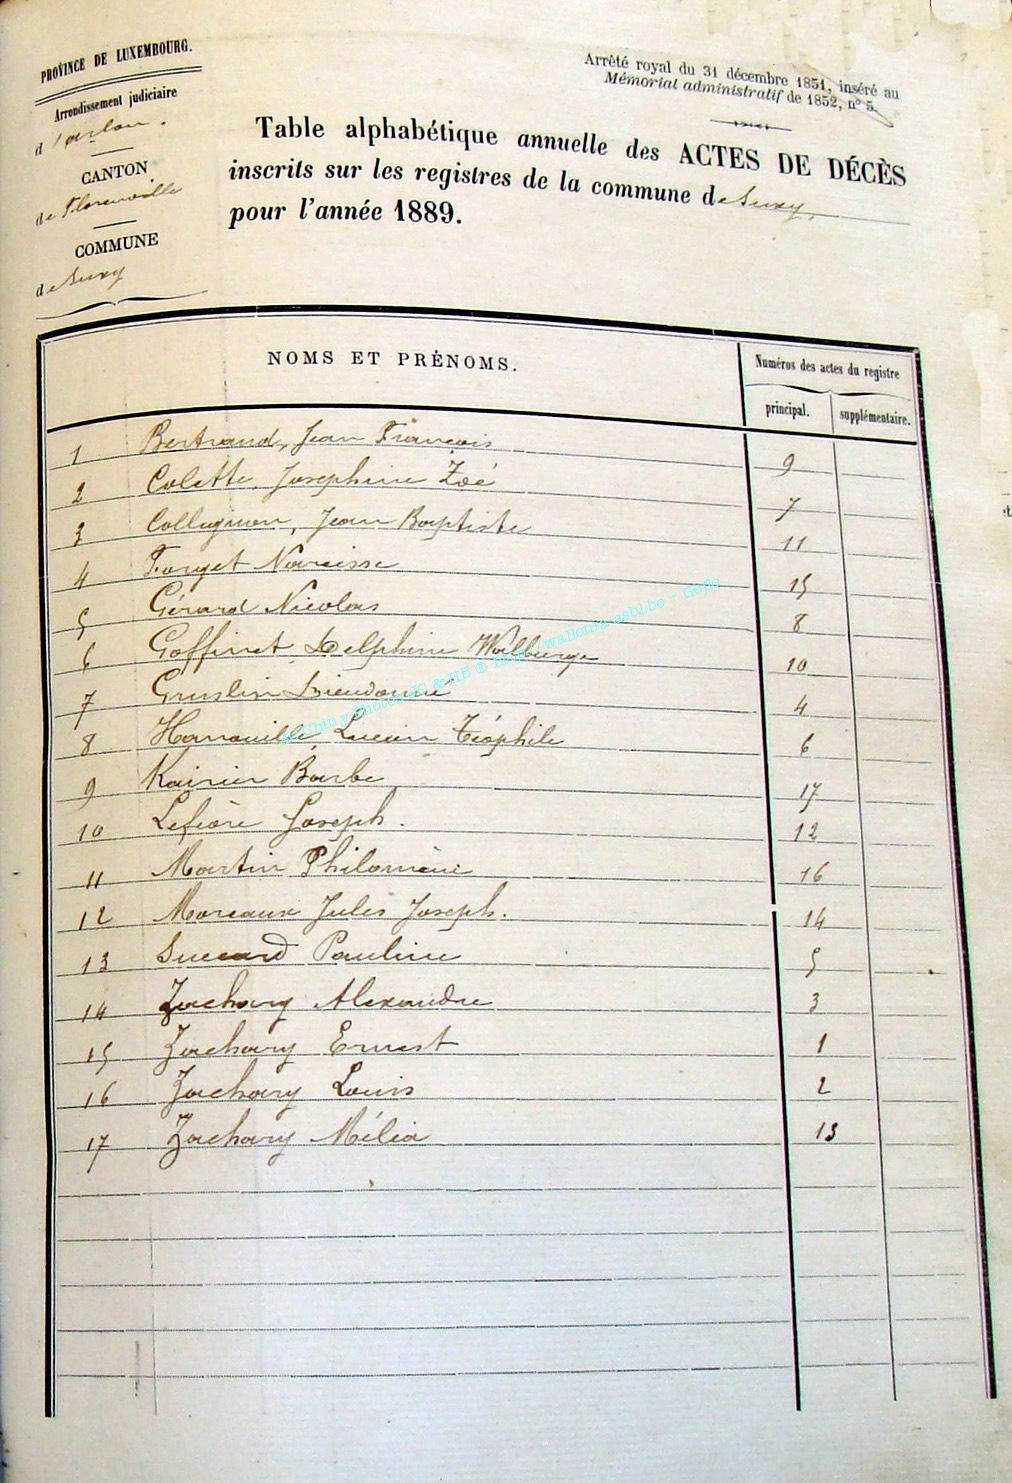 PROVINCE DE LUXEMBOURG.
Arrondissement judiciaire
d'arlon.
CANTON
de Florenville
COMMUNE
de Suxy
Arrêté royal du 31 décembre 1851, inséré au
Mémorial administratif de 1852, n° 5.
Table alphabétique annuelle des ACTES DE DÉCÈS
inscrits sur les registres de la commune de Suxy,
pour l'année 1889.
NOMS ET PRÉNOMS.
Numéros des actes du registre
principal. supplémentaire.
1 Bertrand, Jean François 9
2 Colette, Josephine Zoé 7
3 Collognon, Jean Baptiste 11
4 Forget Narcisse 15
5 Gérard Nicolas 8
6 Goffinet Delphine Walburge 10
7 Gruslin Dieudonné 4
8 Hanouille, Lucien Téophile 6
9 Kairier Barbe 17
10 Lefèvre Joseph. 12
11 Martin Philomène 16
12 Moreaux Jules Joseph. 14
13 Suzard Pauline 5
14 Zachary Alexandre 3
15 Zachary Ernest 1
16 Zachary Louis 2
17 Zachary Mélia 13